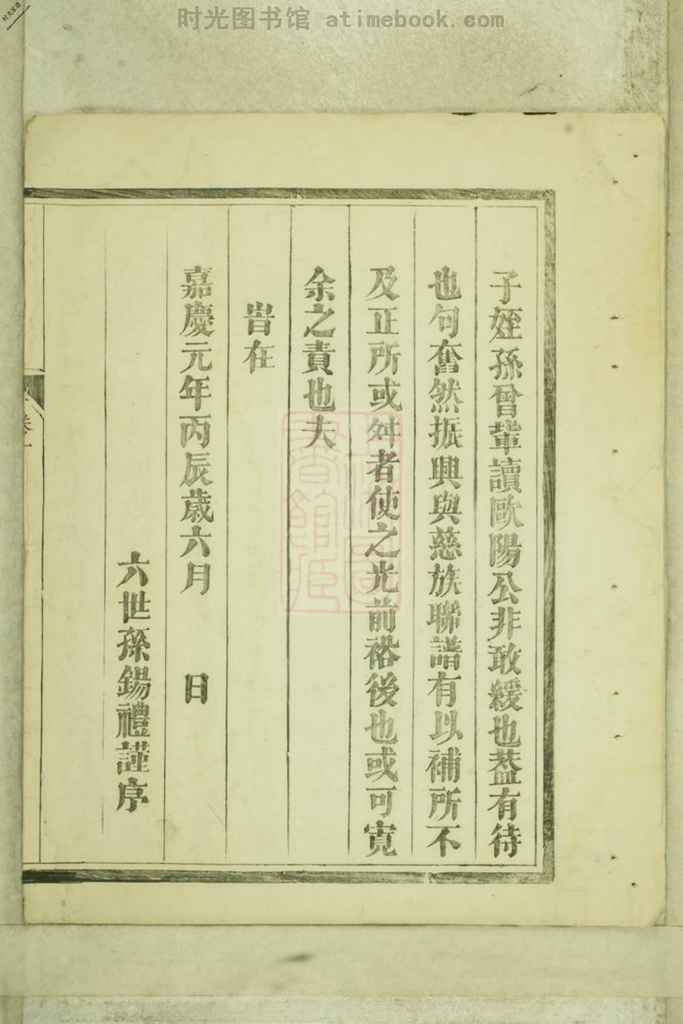 时光图书馆 atimebook.com
子姪孫曾輩讀歐陽公非敢緩也葢有待
也句奮然振興與慈族聯譜有以補所不
及正所或舛者使之光前裕後也或可寛
余之責也夫
旹在
嘉慶元年丙辰歲六月 日
六世孫錫禮謹序